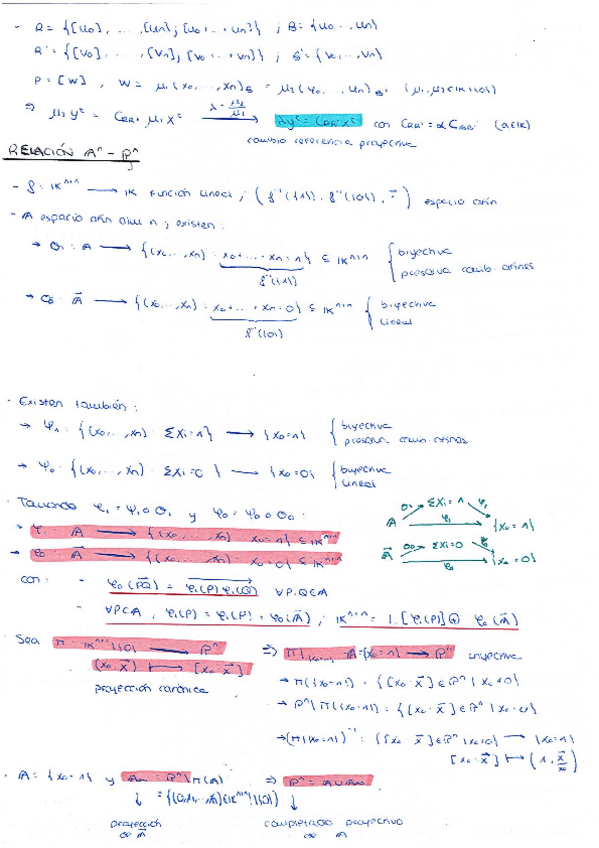 - R = {[u0], ..., [un]; [u0+...+un]} ; B = {u0, ..., un}
R' = {[v0], ..., [vn]; [v0+...+vn]} ; B' = {v0, ..., vn}
P = [w] , w = μ1 (x0, ..., xn)B = μ2 (y0, ..., yn)B' (μ1, μ2 ∈ K\{0})
⇒ μ2 yt = CBB' μ1 xt → λyt = CBB' xt con CRR' = α CBB' (α ∈ K)
cambio referencia proyectiva
RELACIÓN Aⁿ - Pⁿ
- f: Kⁿ⁺¹ → K función lineal ; (f⁻¹({1}), f⁻¹({0}), +) espacio afín
- A espacio afín dim n ; existen:
→ Θ1 : A → {(x0, ..., xn) : x0+...+xn = 1} ⊆ Kⁿ⁺¹ { biyectiva
preserva comb. afines
f⁻¹({1})
→ Θ0 : A⃗ → {(x0, ..., xn) : x0+...+xn = 0} ⊆ Kⁿ⁺¹ { biyectiva
lineal
f⁻¹({0})
- Existen también:
→ Ψ1 : {(x0, ..., xn) : Σxi = 1} → {x0 = 1} { biyectiva
preserva comb. afines
→ Ψ0 : {(x0, ..., xn) : Σxi = 0} → {x0 = 0} { biyectiva
lineal
- Tomando φ1 = Ψ1 ∘ Θ1 y φ0 = Ψ0 ∘ Θ0 :
→ φ1 : A → {(x0, ..., xn) : x0 = 1} ⊆ Kⁿ⁺¹
→ φ0 : A⃗ → {(x0, ..., xn) : x0 = 0} ⊆ Kⁿ⁺¹
Θ1 Σxi = 1 Ψ1
A φ1 {x0 = 1}
Θ0 Σxi = 0 Ψ0
A⃗ φ0 {x0 = 0}
con : - φ0(PQ) = φ1(P) φ1(Q) ∀P,Q ∈ A
- ∀P ∈ A , φ1(A) = φ1(P) + φ0(A⃗) ; Kⁿ⁺¹ = L[φ1(P)] ⊕ φ0(A⃗)
- Sea π : Kⁿ⁺¹\{0} → Pⁿ ⇒ π|{x0=1} : A = {x0 = 1} → Pⁿ inyectiva
(x0, x⃗) ↦ [x0, x⃗]
proyección canónica
→ π({x0 = 1}) = {[x0, x⃗] ∈ Pⁿ | x0 ≠ 0}
→ Pⁿ\π({x0 = 1}) = {[x0, x⃗] ∈ Pⁿ | x0 = 0}
→ (π|{x0=1})⁻¹ : {[x0, x⃗] ∈ Pⁿ | x0 ≠ 0} → {x0 = 1}
[x0, x⃗] ↦ (1, x⃗/x0)
- A = {x0 = 1} y A∞ = Pⁿ\π(A) ⇒ Pⁿ = A ∪ A∞
↓ = {(0, x1, ..., xn) ∈ Kⁿ⁺¹\{0}} ↓
proyección completado proyectivo
de A⃗ de A